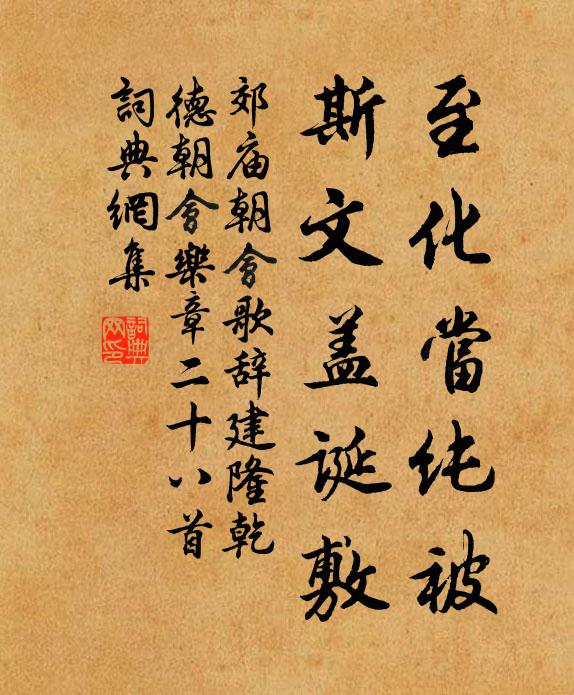 至化當纯被
斯文盖誕敷
郊庙朝會歌辞建隆乾
德朝會樂章二十八首
詞典網集
詞典
网印